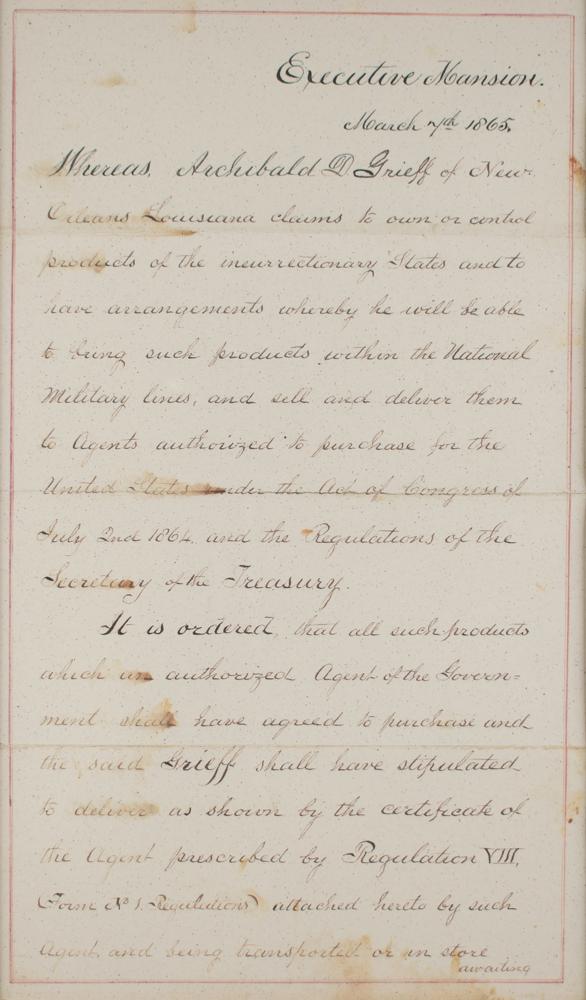 Executive Mansion.
March 7th 1865.
Whereas, Archibald D. Grieff of New-
Orleans Louisiana claims to own or control
products of the insurrectionary States and to
have arrangements whereby he will be able
to bring such products within the National
Military lines, and sell and deliver them
to Agents authorized to purchase for the
United States under the Act of Congress of
July 2nd 1864, and the Regulations of the
Secretary of the Treasury.
It is ordered, that all such products
which an authorized Agent of the Govern=
ment shall have agreed to purchase and
the said Grieff shall have stipulated
to deliver as shown by the certificate of
the Agent prescribed by Regulation VIII,
(Form No 1. Regulations) attached hereto by such
Agent, and being transported or in store
awaiting